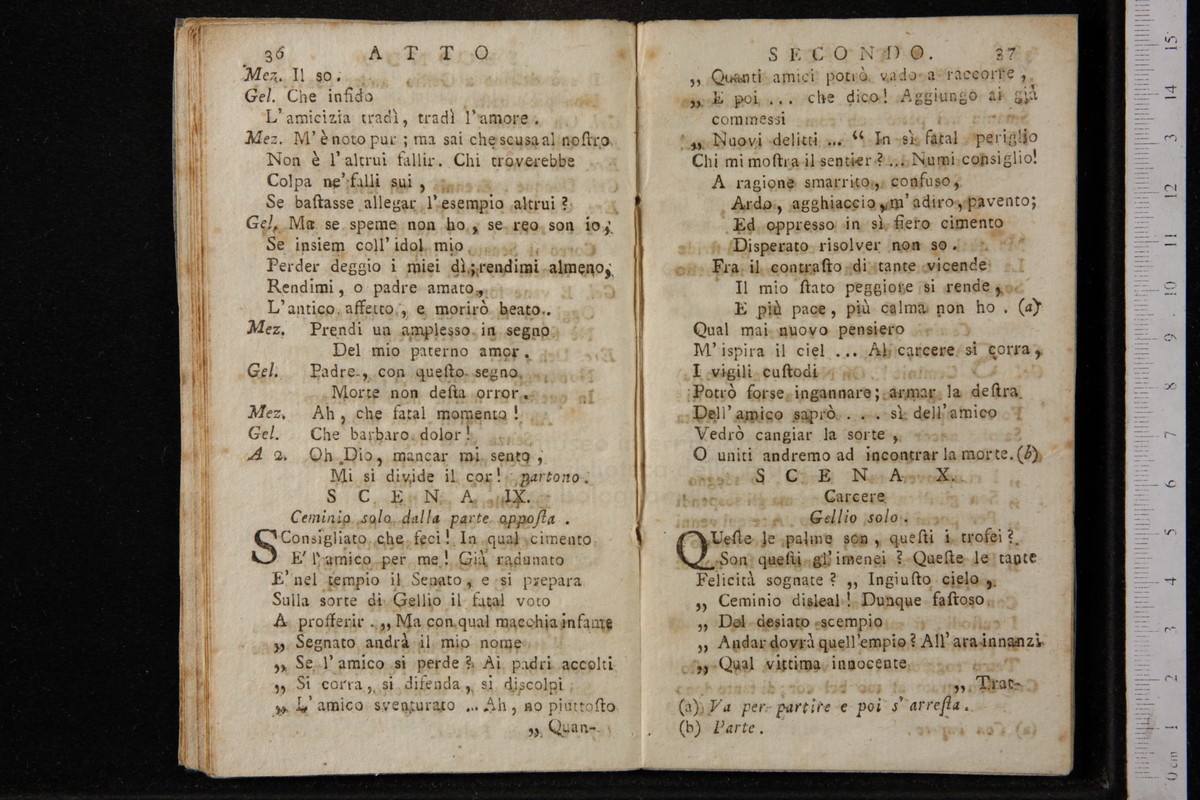 36 ATTO
Mez. Il so.
Gel. Che infido
L'amicizia tradì, tradì l'amore.
Mez. M'è noto pur; ma sai che scusa al noſtro
Non è l'altrui fallir. Chi troverebbe
Colpa ne' falli sui,
Se baſtasse allegar l'esempio altrui?
Gel. Ma se speme non ho, se reo son io,
Se insiem coll'idol mio
Perder deggio i miei dì; rendimi almeno,
Rendimi, o padre amato,
L'antico affetto, e morirò beato.
Mez. Prendi un amplesso in segno
Del mio paterno amor.
Gel. Padre, con queſto segno
Morte non deſta orror.
Mez. Ah, che fatal momento!
Gel. Che barbaro dolor!
A 2. Oh Dio, mancar mi sento,
Mi si divide il cor! partono.
SCENA IX.
Ceminio solo dalla parte oppoſta.
SConsigliato che feci! In qual cimento
E' l'amico per me! Già radunato
E' nel tempio il Senato, e si prepara
Sulla sorte di Gellio il fatal voto
A profferir. „ Ma con qual macchia infame
„ Segnato andrà il mio nome
„ Se l'amico si perde? Ai padri accolti
„ Si corra, si difenda, si discolpi
„ L'amico sventurato ... Ah, no piuttoſto
„ Quan-
SECONDO. 37
„ Quanti amici potrò vado a raccorre,
„ E poi ... che dico! Aggiungo ai già
commessi
„ Nuovi delitti ... “ In sì fatal periglio
Chi mi moſtra il sentier? ... Numi consiglio!
A ragione smarrito, confuso,
Ardo, agghiaccio, m'adiro, pavento;
Ed oppresso in sì fiero cimento
Disperato risolver non so.
Fra il contraſto di tante vicende
Il mio ſtato peggiore si rende,
E più pace, più calma non ho. (a)
Qual mai nuovo pensiero
M'ispira il ciel ... Al carcere si corra,
I vigili cuſtodi
Potrò forse ingannare; armar la deſtra
Dell'amico saprò ... sì dell'amico
Vedrò cangiar la sorte,
O uniti andremo ad incontrar la morte. (b)
SCENA X.
Carcere
Gellio solo.
QUeſte le palme son, queſti i trofei?
Son queſti gl'imenei? Queſte le tante
Felicità sognate? „ Ingiuſto cielo,
„ Ceminio disleal! Dunque faſtoso
„ Del desiato scempio
„ Andar dovrà quell'empio? All'ara innanzi
„ Qual vittima innocente
„ Trat-
(a) Va per partire e poi s'arreſta.
(b) Parte.
15
14
13
12
11
10
9
8
7
6
5
4
3
2
1
0 cm